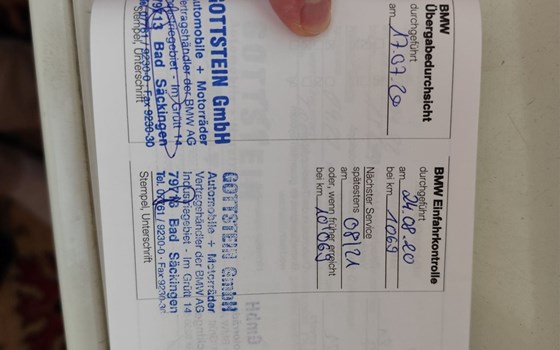 BMW
Übergabedurchsicht
durchgeführt
am 17.07.20
GOTTSTEIN GmbH
Automobile + Motorräder
Vertragshändler der BMW AG
Industriegebiet - Im Grütt 14
79713 Bad Säckingen
Tel. 07761 / 9230-0 · Fax 9230-30
Stempel, Unterschrift
BMW Einfahrkontrolle
durchgeführt
am 24.08.20
bei km 1069
Nächster Service
spätestens
am 08/21
oder, wenn früher erreicht
bei km 10'069
GOTTSTEIN GmbH
Automobile + Motorräder
Vertragshändler der BMW AG
Industriegebiet - Im Grütt 14
79713 Bad Säckingen
Tel. 07761 / 9230-0 · Fax 9230-30
Stempel, Unterschrift